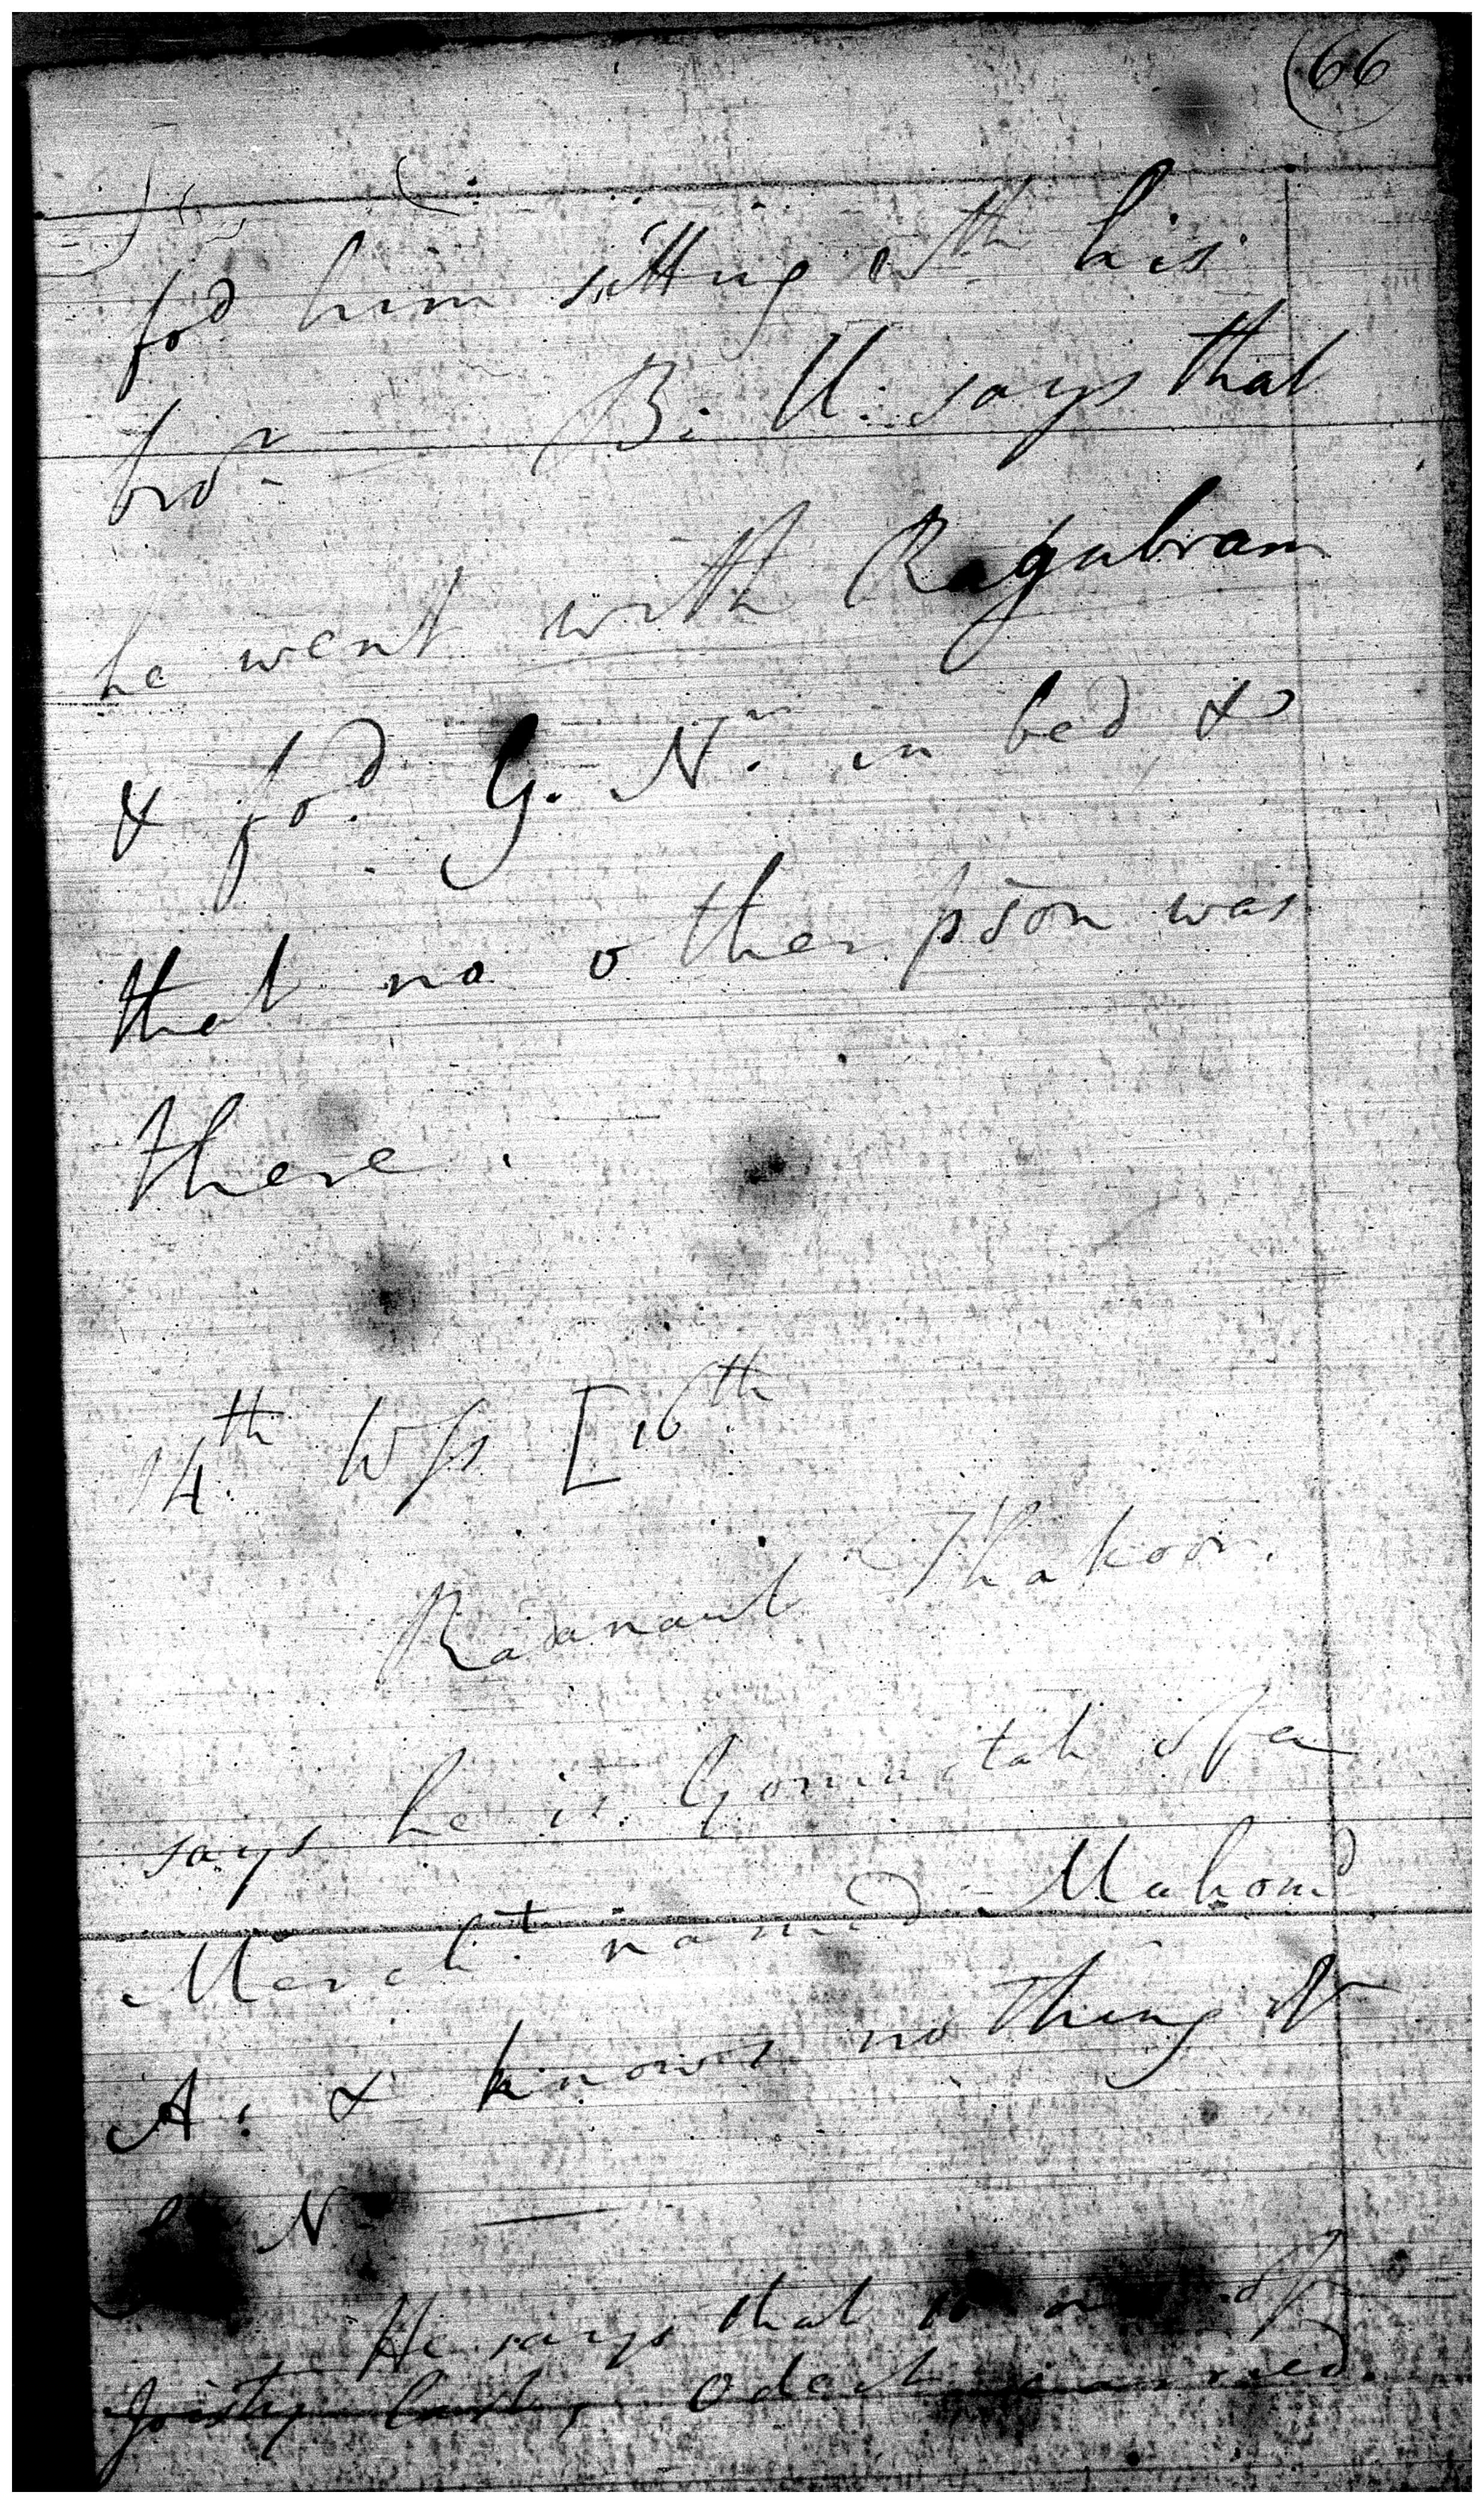 66
fod him sitting with his
bror — B. U. says that
he went with Ragubram
& fod. G. N. in bed &
that no other pson was
there. —
14th Wss [16th
Radanaut Thakoor.
says he is Gomastah of a
Mercht. named Mahomd
A. & knows nothing of
G. N. —
He says that 10 of
Joisty last, Odect married